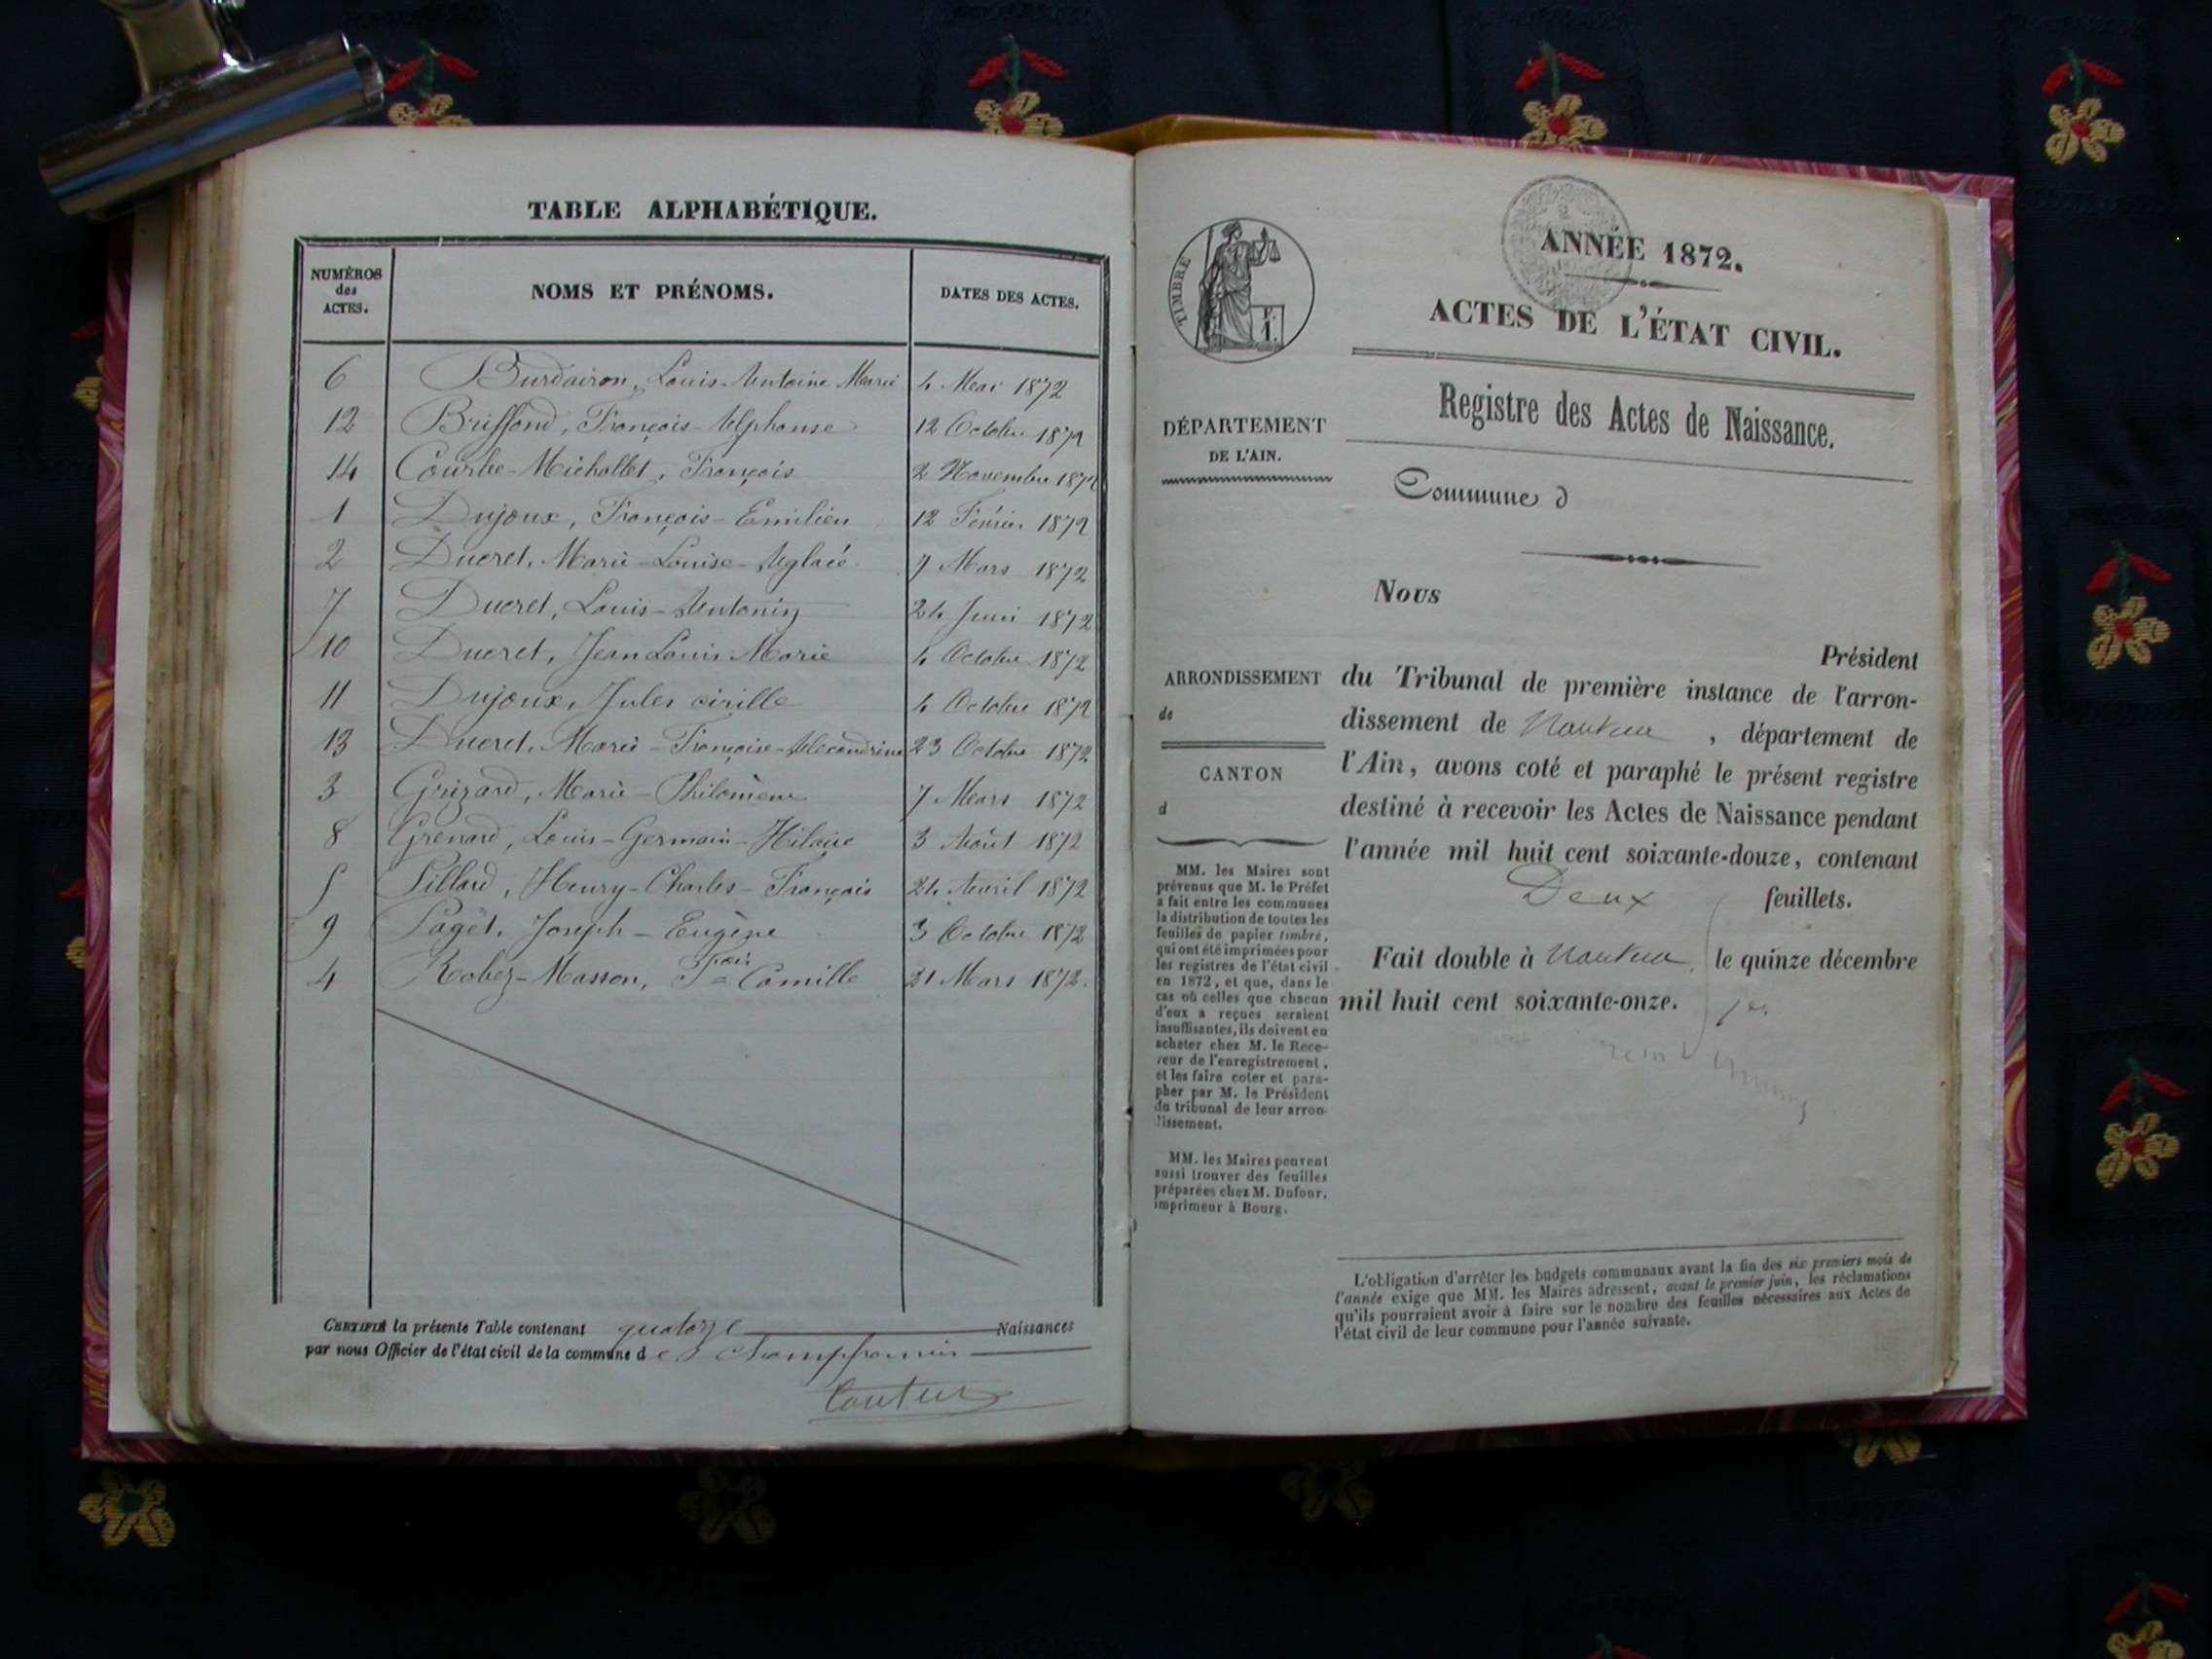 TABLE ALPHABÉTIQUE.
NUMÉROS
des
ACTES.
NOMS ET PRÉNOMS.
DATES DES ACTES.
6 Burdairon, Louis-Antoine Marie 4 Mai 1872
12 Briffond, François-Alphonse 12 Octobre 1872
14 Courbe-Michollet, François 2 Novembre 1872
1 Dujoux, François-Emilien 12 Février 1872
2 Ducret, Marie-Louise-Aglaé 7 Mars 1872
7 Ducret, Louis-Antonin 24 Juin 1872
10 Ducret, Jean Louis Marie 4 Octobre 1872
11 Dujoux, Jules cirille 4 Octobre 1872
13 Ducret, Marie-Françoise-Alexandrine 23 Octobre 1872
3 Grizard, Marie-Philomène 7 Mars 1872
8 Grenard, Louis-Germain-Hilaire 3 Août 1872
5 Lillard, Henry-Charles-François 24 Avril 1872
9 Paget, Joseph-Eugène 3 Octobre 1872
4 Robez-Masson, Fçois Camille 21 Mars 1872.
CERTIFIÉ la présente Table contenant quatorze Naissances
par nous Officier de l'état civil de la commune de Champfromier
TIMBRE
1.
ANNÉE 1872.
ACTES DE L'ÉTAT CIVIL.
Registre des Actes de Naissance.
DÉPARTEMENT
DE L'AIN.
Commune d
Nous
Président
ARRONDISSEMENT
de
CANTON
d
du Tribunal de première instance de l'arron-
dissement de Nantua, département de
l'Ain, avons coté et paraphé le présent registre
destiné à recevoir les Actes de Naissance pendant
l'année mil huit cent soixante-douze, contenant
Deux feuillets.
Fait double à Nantua, le quinze décembre
mil huit cent soixante-onze.
MM. les Maires sont
prévenus que M. le Préfet
a fait entre les communes
la distribution de toutes les
feuilles de papier timbré,
qui ont été imprimées pour
les registres de l'état civil
en 1872, et que, dans le
cas où celles que chacun
d'eux a reçues seraient
insuffisantes, ils doivent en
acheter chez M. le Rece-
veur de l'enregistrement,
et les faire coter et para-
pher par M. le Président
du tribunal de leur arron-
dissement.
MM. les Maires peuvent
aussi trouver des feuilles
préparées chez M. Dufour,
imprimeur à Bourg.
L'obligation d'arrêter les budgets communaux avant la fin des six premiers mois de
l'année exige que MM. les Maires adressent, avant le premier juin, les réclamations
qu'ils pourraient avoir à faire sur le nombre des feuilles nécessaires aux Actes de
l'état civil de leur commune pour l'année suivante.